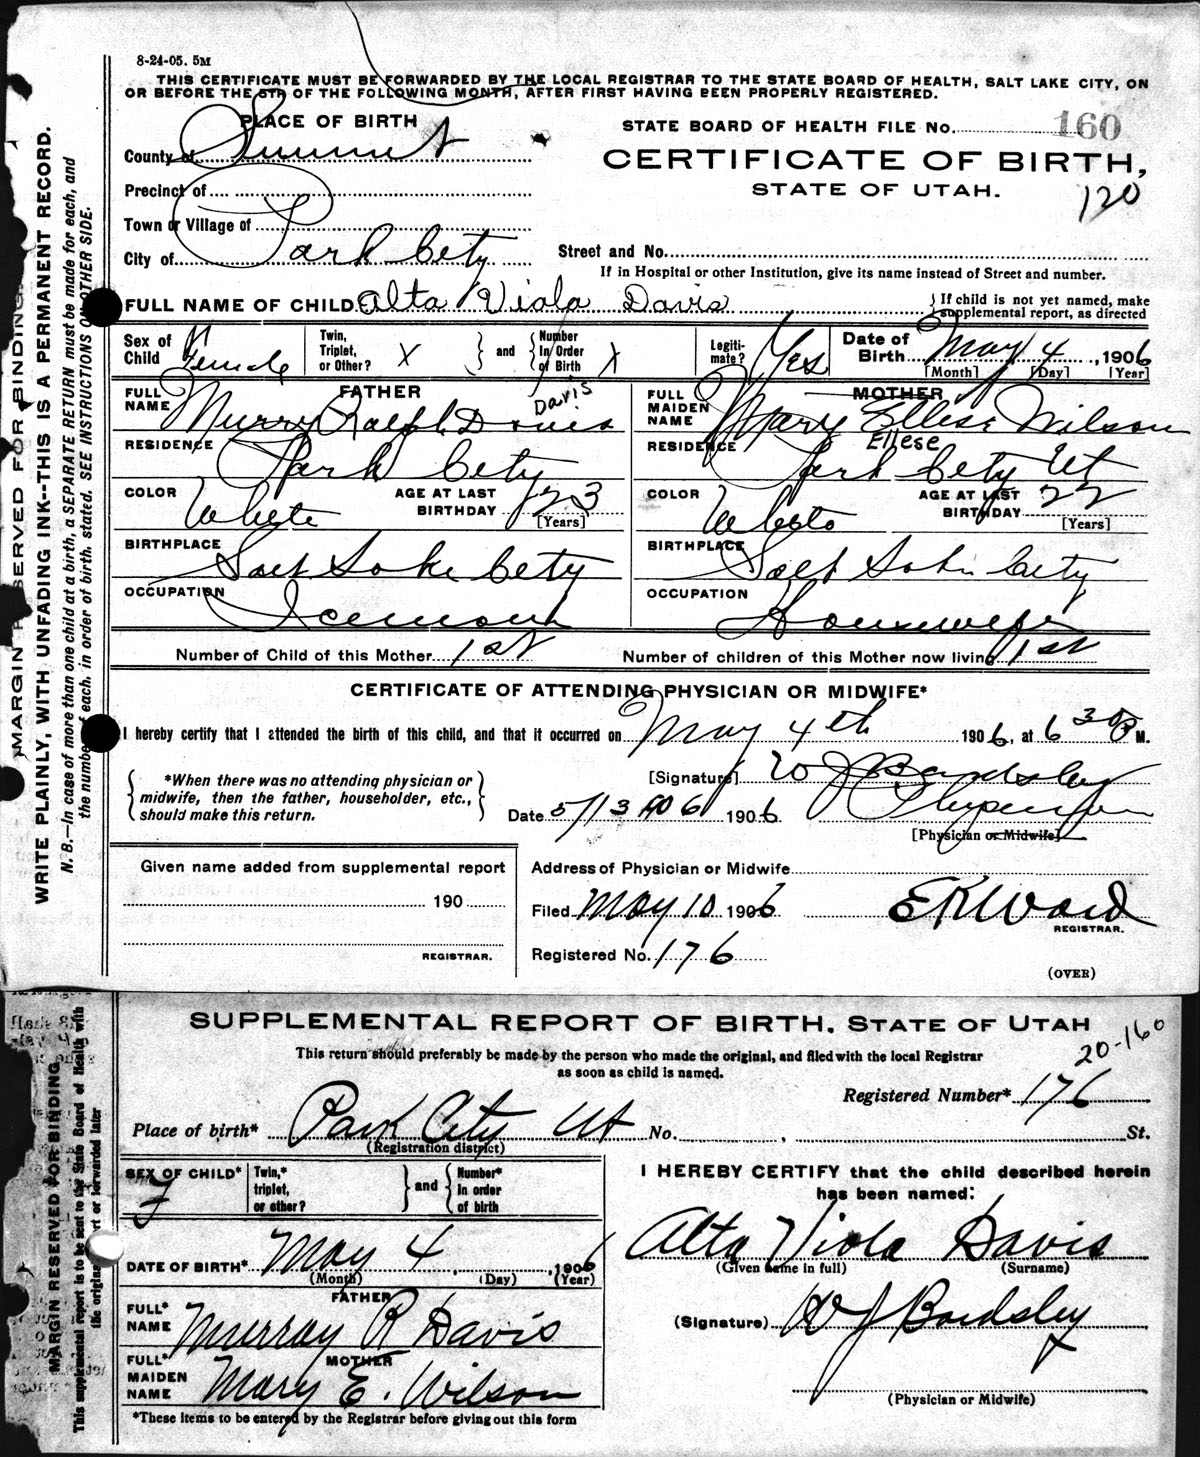 8-24-05. 5M
THIS CERTIFICATE MUST BE FORWARDED BY THE LOCAL REGISTRAR TO THE STATE BOARD OF HEALTH, SALT LAKE CITY, ON
OR BEFORE THE 5TH OF THE FOLLOWING MONTH, AFTER FIRST HAVING BEEN PROPERLY REGISTERED.
PLACE OF BIRTH
STATE BOARD OF HEALTH FILE No. 160
County of Summit
CERTIFICATE OF BIRTH,
Precinct of
STATE OF UTAH.
120
Town or Village of
City of Park City
Street and No.
If in Hospital or other Institution, give its name instead of Street and number.
FULL NAME OF CHILD Alta Viola Davis
If child is not yet named, make supplemental report, as directed
Sex of Child Female
Twin, Triplet, or Other? X and Number In Order of Birth X
Legitimate? Yes
Date of Birth May 4, 1906
[Month] [Day] [Year]
FATHER
FULL NAME Murry Ralph Davis
Davis
MOTHER
FULL MAIDEN NAME Mary Ellese Wilson
Ellese
RESIDENCE Park City
RESIDENCE Park City Ut
COLOR White AGE AT LAST BIRTHDAY 23 [Years]
COLOR White AGE AT LAST BIRTHDAY 22 [Years]
BIRTHPLACE Salt Lake City
BIRTHPLACE Salt Lake City
OCCUPATION Iceman
OCCUPATION Housewife
Number of Child of this Mother 1st
Number of children of this Mother now living 1st
CERTIFICATE OF ATTENDING PHYSICIAN OR MIDWIFE*
I hereby certify that I attended the birth of this child, and that it occurred on May 4th 1906, at 6 30 P M.
*When there was no attending physician or midwife, then the father, householder, etc., should make this return.
[Signature] W J Bardsley
Date 5/13 1906 1906
Physician
[Physician or Midwife]
Given name added from supplemental report
190
REGISTRAR.
Address of Physician or Midwife
Filed May 10 1906 E K Ward
REGISTRAR.
Registered No. 176
(OVER)
MARGIN RESERVED FOR BINDING
WRITE PLAINLY, WITH UNFADING INK--THIS IS A PERMANENT RECORD.
N. B.—In case of more than one child at a birth, a SEPARATE RETURN must be made for each, and
the number of each, in order of birth, stated. SEE INSTRUCTIONS ON OTHER SIDE.
SUPPLEMENTAL REPORT OF BIRTH, STATE OF UTAH
This return should preferably be made by the person who made the original, and filed with the local Registrar
as soon as child is named.
20-160
Registered Number* 176
Place of birth* Park City Ut No. , St.
(Registration district)
SEX OF CHILD* F
Twin,* triplet, or other? and Number* in order of birth
I HEREBY CERTIFY that the child described herein
has been named:
Alta Viola Davis
(Given name in full) (Surname)
DATE OF BIRTH* May 4, 1906
(Month) (Day) (Year)
FATHER
FULL* NAME Murray R Davis
(Signature) W J Bardsley
MOTHER
FULL* MAIDEN NAME Mary E. Wilson
(Physician or Midwife)
*These items to be entered by the Registrar before giving out this form
MARGIN RESERVED FOR BINDING
This supplemental report is to be sent to the State Board of Health with